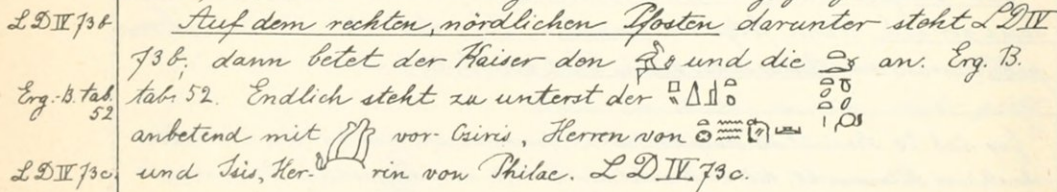 L D IV 73b Auf dem rechten, nördlichen Pfosten darunter steht L D IV
73b; dann betet der Kaiser den und die an. Erg. B.
Erg.-B. tab. tab. 52. Endlich steht zu unterst der
52
anbetend mit vor Osiris, Herren von
L D IV 73c und Isis, Her- rin von Philae. L D IV 73c.